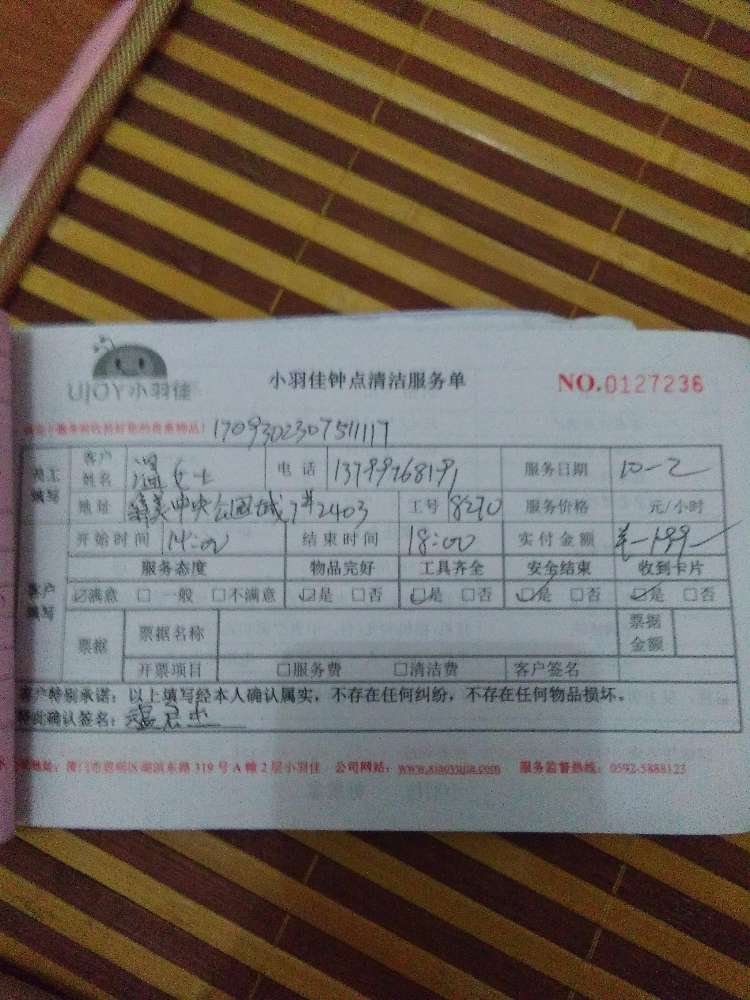 UJOY小羽佳
小羽佳钟点清洁服务单
NO.0127236
1709302307511117
员工填写 客户姓名 温女士 电话 13799768191 服务日期 10-2
地址 中央公园城7#2403 工号 8270 服务价格 元/小时
开始时间 14:00 结束时间 18:00 实付金额 ¥-199-
客户填写 服务态度 物品完好 工具齐全 安全结束 收到卡片
☑满意 □一般 □不满意 ☑是 □否 ☑是 □否 ☑是 □否 ☑是 □否
票据 票据名称 票据金额
开票项目 □服务费 □清洁费 客户签名
客户特别承诺：以上填写经本人确认属实，不存在任何纠纷，不存在任何物品损坏。
特此确认签名：温
地址：厦门市思明区湖滨东路 319 号 A 幢 2 层小羽佳 公司网站：www.xiaoyujia.com 服务监督热线：0592-5888123